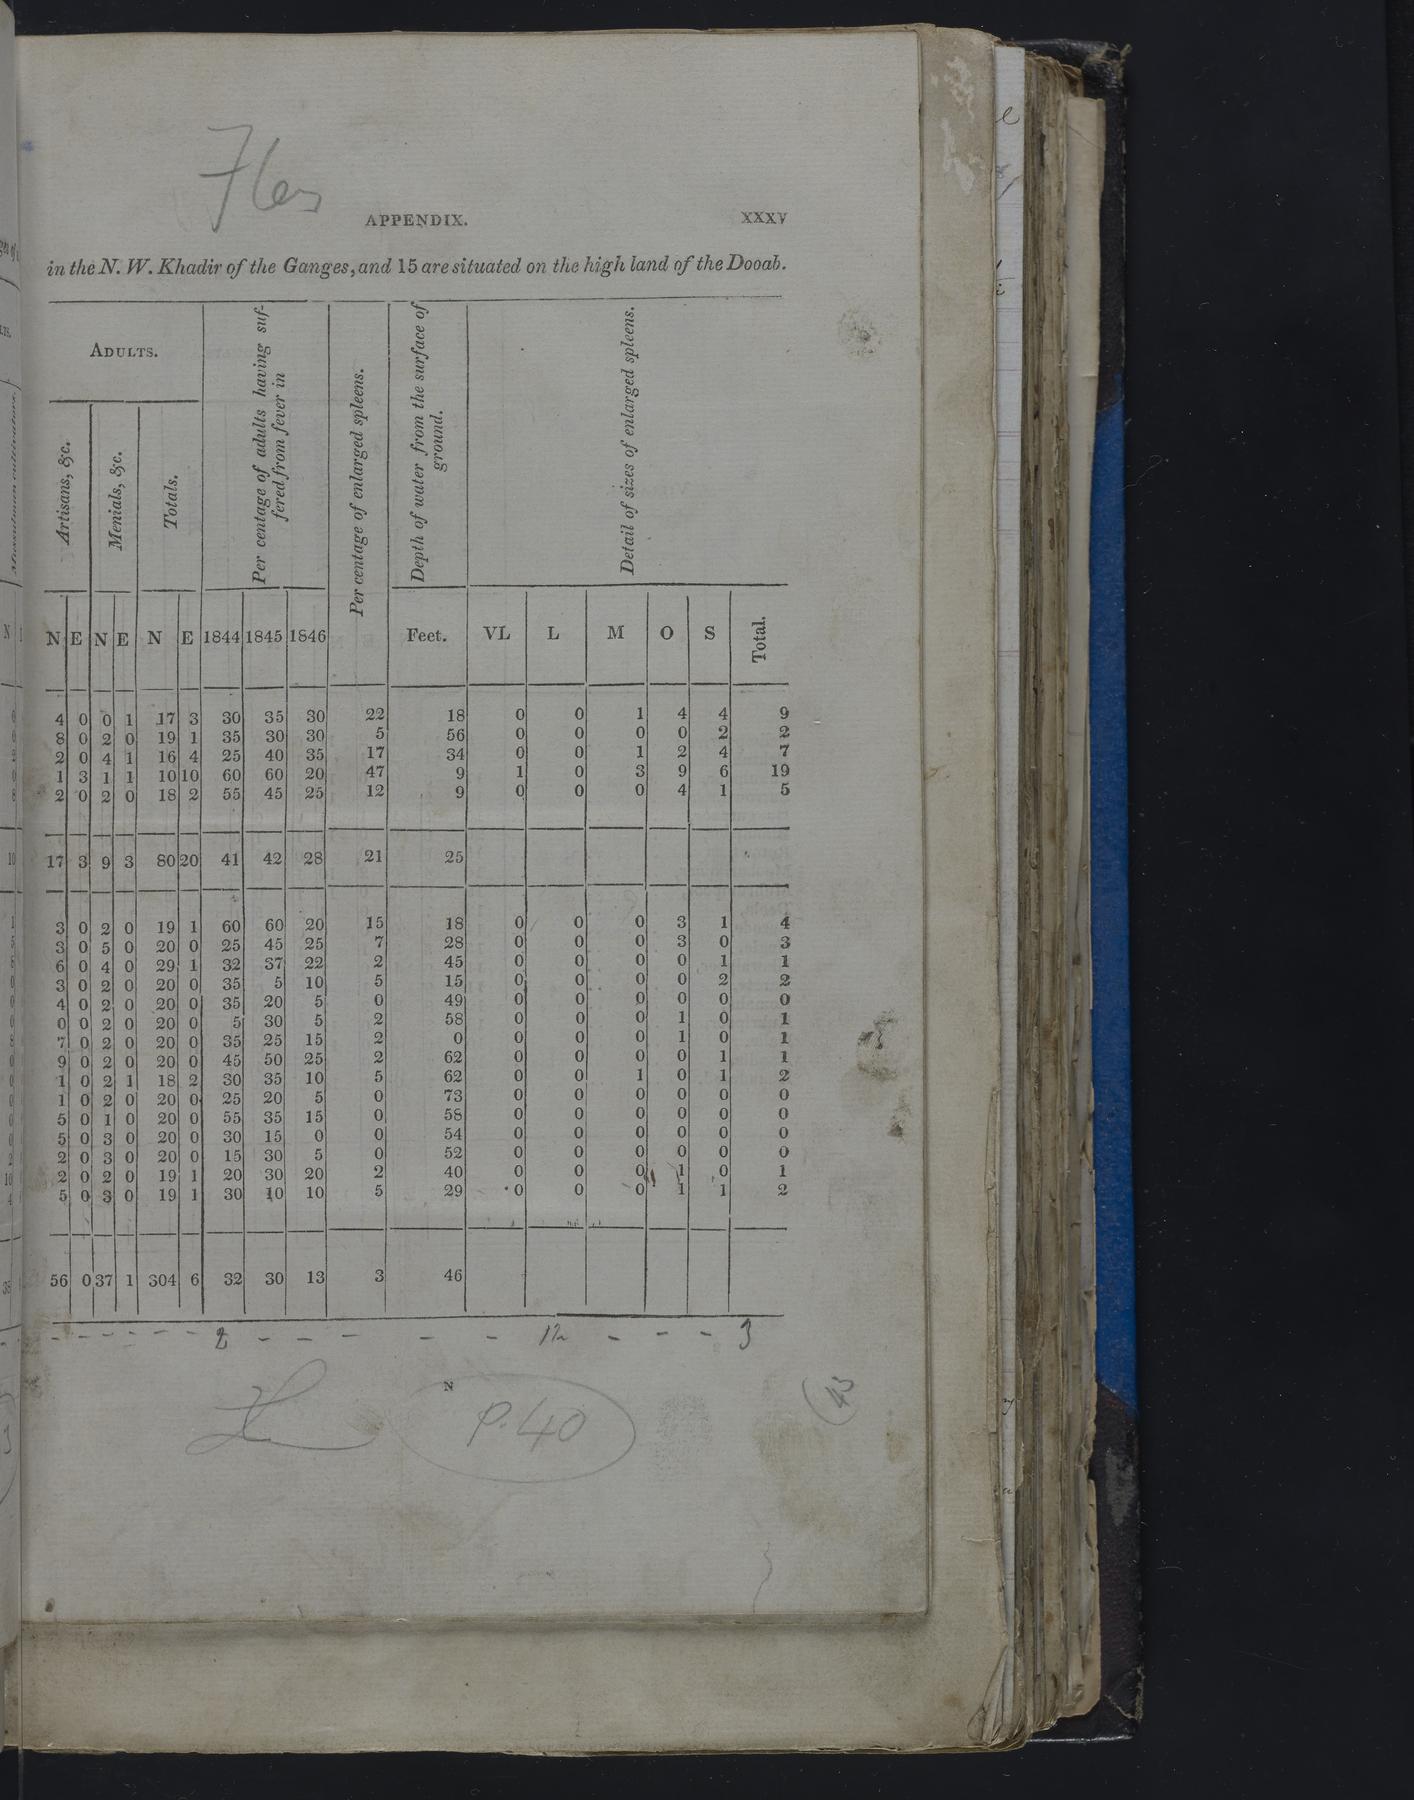 APPENDIX. XXXV
in the N. W. Khadir of the Ganges, and 15 are situated on the high land of the Dooab.
ADULTS.
Artisans, &c.
Menials, &c.
Totals.
Per centage of adults having suf-
fered from fever in
Per centage of enlarged spleens.
Depth of water from the surface of
ground.
Detail of sizes of enlarged spleens.
N E N E N E 1844 1845 1846 Feet. VL L M O S Total.
4 0 0 1 17 3 30 35 30 22 18 0 0 1 4 4 9
8 0 2 0 19 1 35 30 30 5 56 0 0 0 0 2 2
2 0 4 1 16 4 25 40 35 17 34 0 0 1 2 4 7
1 3 1 1 10 10 60 60 20 47 9 1 0 3 9 6 19
2 0 2 0 18 2 55 45 25 12 9 0 0 0 4 1 5
17 3 9 3 80 20 41 42 28 21 25
3 0 2 0 19 1 60 60 20 15 18 0 0 0 3 1 4
3 0 5 0 20 0 25 45 25 7 28 0 0 0 3 0 3
6 0 4 0 29 1 32 37 22 2 45 0 0 0 0 1 1
3 0 2 0 20 0 35 5 10 5 15 0 0 0 0 2 2
4 0 2 0 20 0 35 20 5 0 49 0 0 0 0 0 0
0 0 2 0 20 0 5 30 5 2 58 0 0 0 1 0 1
7 0 2 0 20 0 35 25 15 2 0 0 0 0 1 0 1
9 0 2 0 20 0 45 50 25 2 62 0 0 0 0 1 1
1 0 2 1 18 2 30 35 10 5 62 0 0 1 0 1 2
1 0 2 0 20 0 25 20 5 0 73 0 0 0 0 0 0
5 0 1 0 20 0 55 35 15 0 58 0 0 0 0 0 0
5 0 3 0 20 0 30 15 0 0 54 0 0 0 0 0 0
2 0 3 0 20 0 15 30 5 0 52 0 0 0 0 0 0
2 0 2 0 19 1 20 30 20 2 40 0 0 0 1 0 1
5 0 3 0 19 1 30 10 10 5 29 0 0 0 1 1 2
56 0 37 1 304 6 32 30 13 3 46
- - - - - - - 2 - - - - - 12 - - - 3
N
P. 40